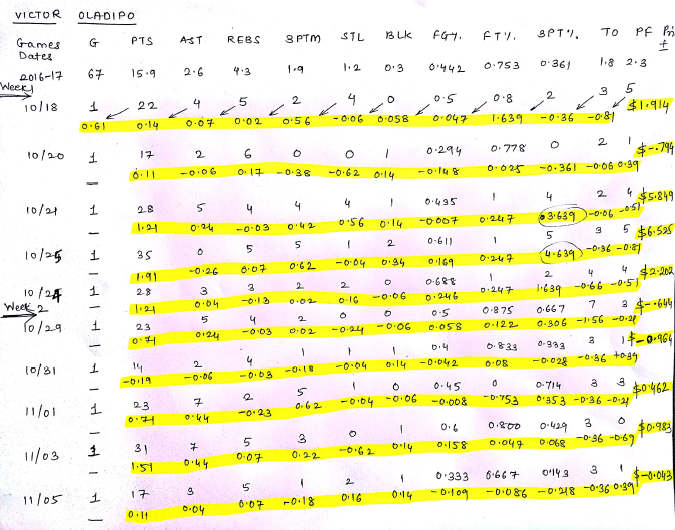 VICTOR OLADIPO
Games Dates G PTS AST REBS 3PTM STL BLK FG%. FT%. 3PT%. TO PF Pri ±
2016-17 67 15.9 2.6 4.3 1.9 1.2 0.3 0.442 0.753 0.361 1.8 2.3
Week1
10/18 1 22 4 5 2 4 0 0.5 0.8 2 3 5 $1.914
0.61 0.14 0.07 0.02 0.56 -0.06 0.058 0.047 1.639 -0.36 -0.81
10/20 1 17 2 6 0 0 1 0.294 0.778 0 2 1 $-.794
— 0.11 -0.06 0.17 -0.38 -0.62 0.14 -0.148 0.025 -0.361 -0.06 0.39
10/21 1 28 5 4 4 4 1 0.435 1 4 2 4 $5.849
— 1.21 0.24 -0.03 0.42 0.56 0.14 -0.007 0.247 3.639 -0.06 -0.51
10/25 1 35 0 5 5 1 2 0.611 1 5 3 5 $6.525
— 1.91 -0.26 0.07 0.62 -0.04 0.34 0.169 0.247 4.639 -0.36 -0.81
10/27 1 28 3 3 2 2 0 0.688 1 2 4 4 $2.202
— 1.21 0.04 -0.13 0.02 0.16 -0.06 0.246 0.247 1.639 -0.66 -0.51
Week 2
10/29 1 23 5 4 2 0 0 0.5 0.875 0.667 7 3 $-.644
— 0.71 0.24 -0.03 0.02 -0.24 -0.06 0.058 0.122 0.306 -1.56 -0.21
10/31 1 14 2 4 1 1 1 0.4 0.833 0.333 3 1 $-0.964
— -0.19 -0.06 -0.03 -0.18 -0.04 0.14 -0.042 0.08 -0.028 -0.36 +0.39
11/01 1 23 7 2 5 1 0 0.45 0 0.714 3 3 $0.462
— 0.71 0.44 -0.23 0.62 -0.04 -0.06 -0.008 -0.753 0.353 -0.36 -0.21
11/03 1 31 7 5 3 0 1 0.6 0.800 0.429 3 0 $0.983
— 1.51 0.44 0.07 0.22 -0.62 0.14 0.158 0.047 0.068 -0.36 -0.69
11/05 1 17 3 5 1 2 1 0.333 0.667 0.143 3 1 $-0.043
— 0.11 0.04 0.07 -0.18 0.16 0.14 -0.109 -0.086 -0.218 -0.36 0.39